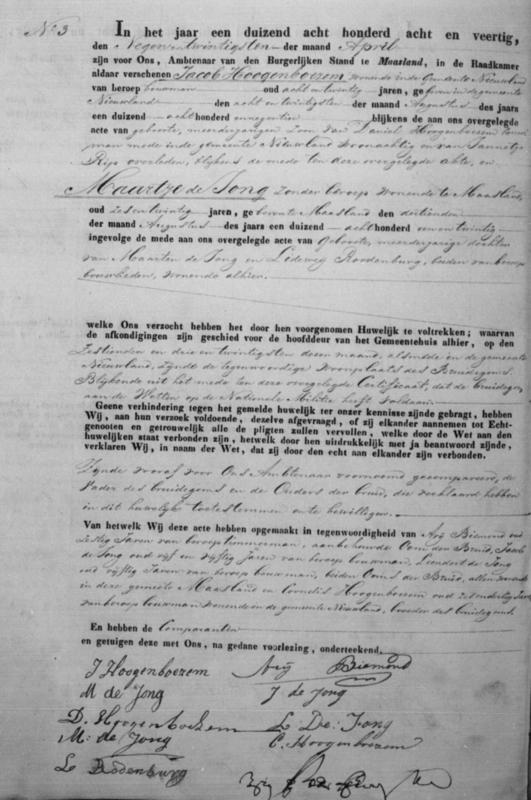 No 3
In het jaar een duizend acht honderd acht en veertig,
den Negen en twintigsten der maand April
zijn voor Ons, Ambtenaar van den Burgerlijken Stand te Maasland, in de Raadkamer
aldaar verschenen Jacob Hoogenboezem wonende in de Gemeente Nieuwland
van beroep bouwman oud acht en twintig jaren, geboren in de gemeente
Nieuwland den acht en twintigsten der maand Augustus des jaars
een duizend achthonderd en negentien blijkens de aan ons overgelegde
acte van geboorte, meerderjarigen Zoon van Daniel Hoogenboezem bouw
man mede in de gemeente Nieuwland woonachtig en van Jannetje
Rip overleden, blijkens de mede ten deze overgelegde akte, en
Maartje de Jong zonder beroep wonende te Maasland
oud zes en twintig jaren, geboren te Maasland den dertienden
der maand Augustus des jaars een duizend achthonderd een en twintig
ingevolge de mede aan ons overgelegde acte van Geboorte, meerderjarige dochter
van Maarten de Jong en Lidewey Roodenburg, beiden van beroep
bouwlieden, wonende alhier.
welke Ons verzocht hebben het door hen voorgenomen Huwelijk te voltrekken; waarvan
de afkondigingen zijn geschied voor de hoofddeur van het Gemeentehuis alhier, op den
Zestienden en drie en twintigsten dezer maand, alsmede in de gemeente
Nieuwland, zijnde de tegenwoordige woonplaats des Bruidegoms.
Blijkende uit het mede ten deze overgelegde Certificaat, dat de bruidegom
aan de Wetten op de Nationale Militie heeft voldaan
Geene verhindering tegen het gemelde huwelijk ter onzer kennisse zijnde gebragt, hebben
Wij, aan hun verzoek voldoende, dezelve afgevraagd, of zij elkander aannemen tot Echt-
genooten en getrouwelijk alle de pligten zullen vervullen, welke door de Wet aan den
huwelijken staat verbonden zijn, hetwelk door hen uitdrukkelijk met ja beantwoord zijnde,
verklaren Wij, in naam der Wet, dat zij door den echt aan elkander zijn verbonden.
Zijnde vooraf voor Ons Ambtenaar voornoemd gecompareerd, de
Vader des bruidegoms en de Ouders der bruid, die verklaard hebben
in dit huwelijk toetestemmen en te bewilligen.
Van hetwelk Wij deze acte hebben opgemaakt in tegenwoordigheid van Arij Biemond oud
zestig Jaren van beroep timmerman, aanbehuwde Oom der Bruid, Jacob
de Jong oud vijf en vijftig jaren van beroep bouwman, Leendert de Jong
oud vijftig Jaren van beroep bouwman, beiden Ooms der Bruid, allen wonende
in deze gemeente Maasland en Cornelis Hoogenboezem oud
van beroep bouwman wonende in de gemeente Nieuwland, broeder des bruidegoms
En hebben de Comparanten
en getuigen deze met Ons, na gedane voorlezing, onderteekend.
J Hoogenboezem Arij Biemond
M de Jong J de Jong
D. Hoogenboezem L. De Jong
M: de Jong C. Hoogenboezem
L Rodenburg